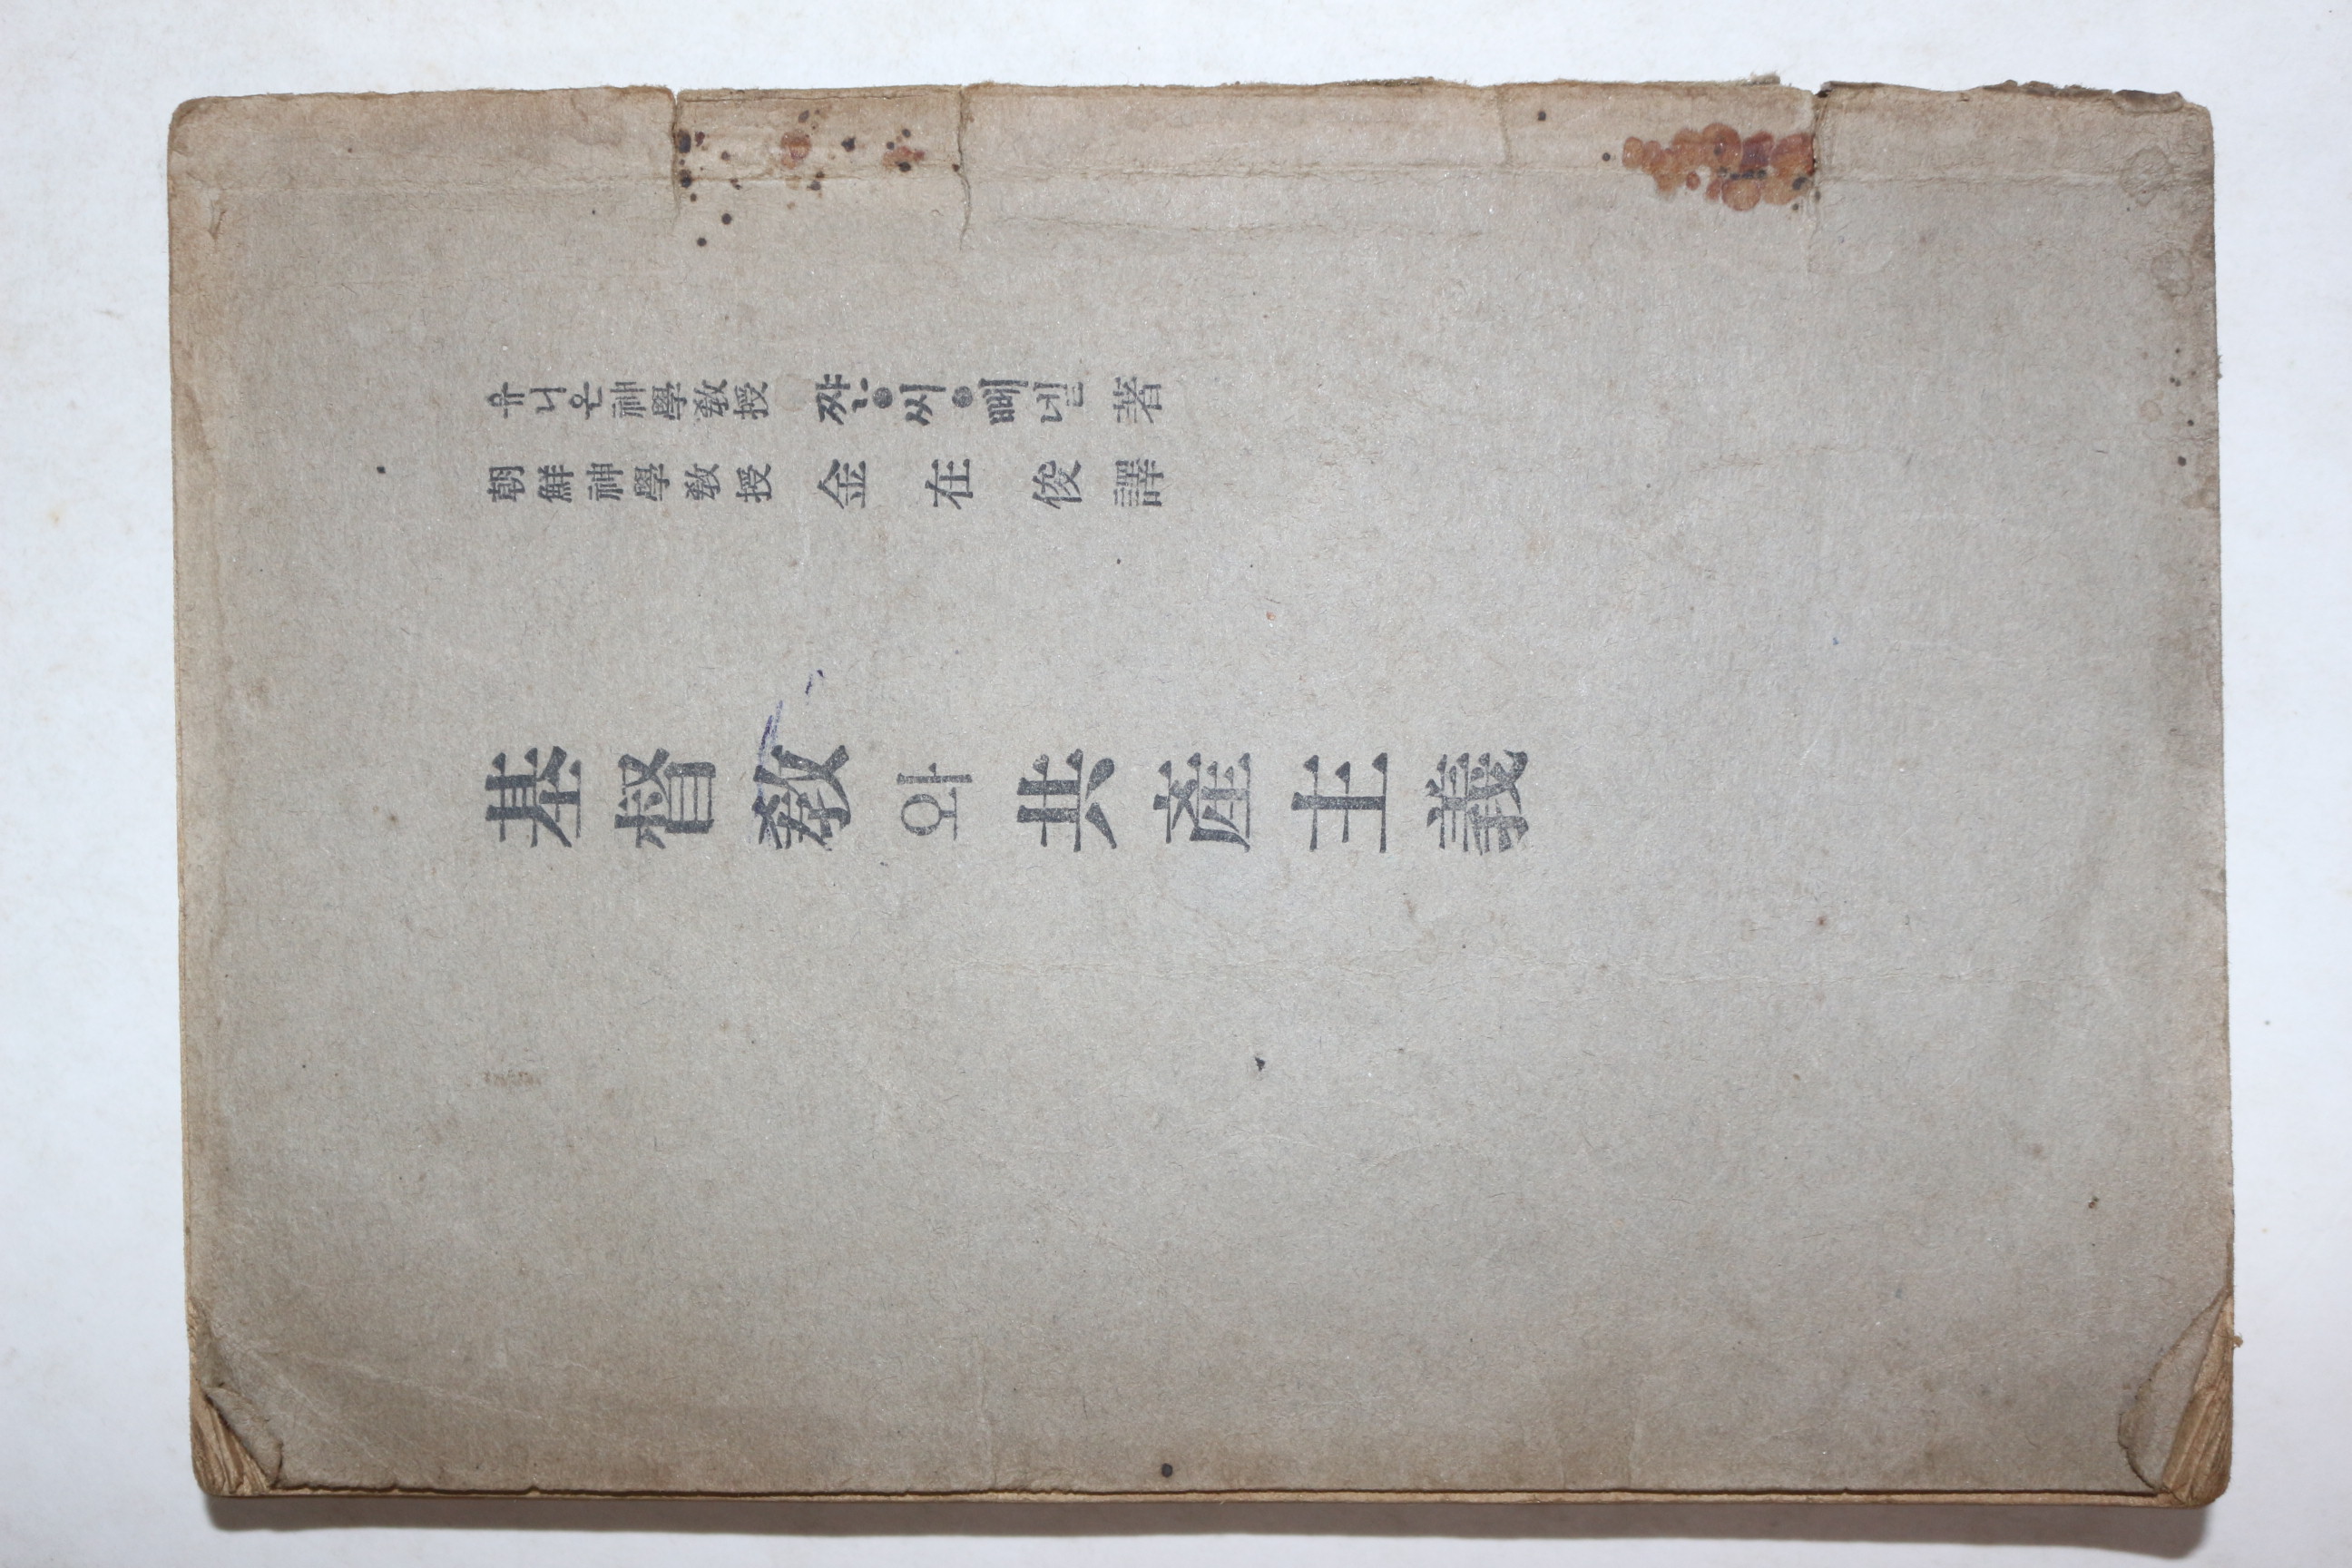 유니온神學敎授 쨘·씨·뻬넽 著
朝鮮神學敎授 金在俊 譯
基督敎와 共產主義